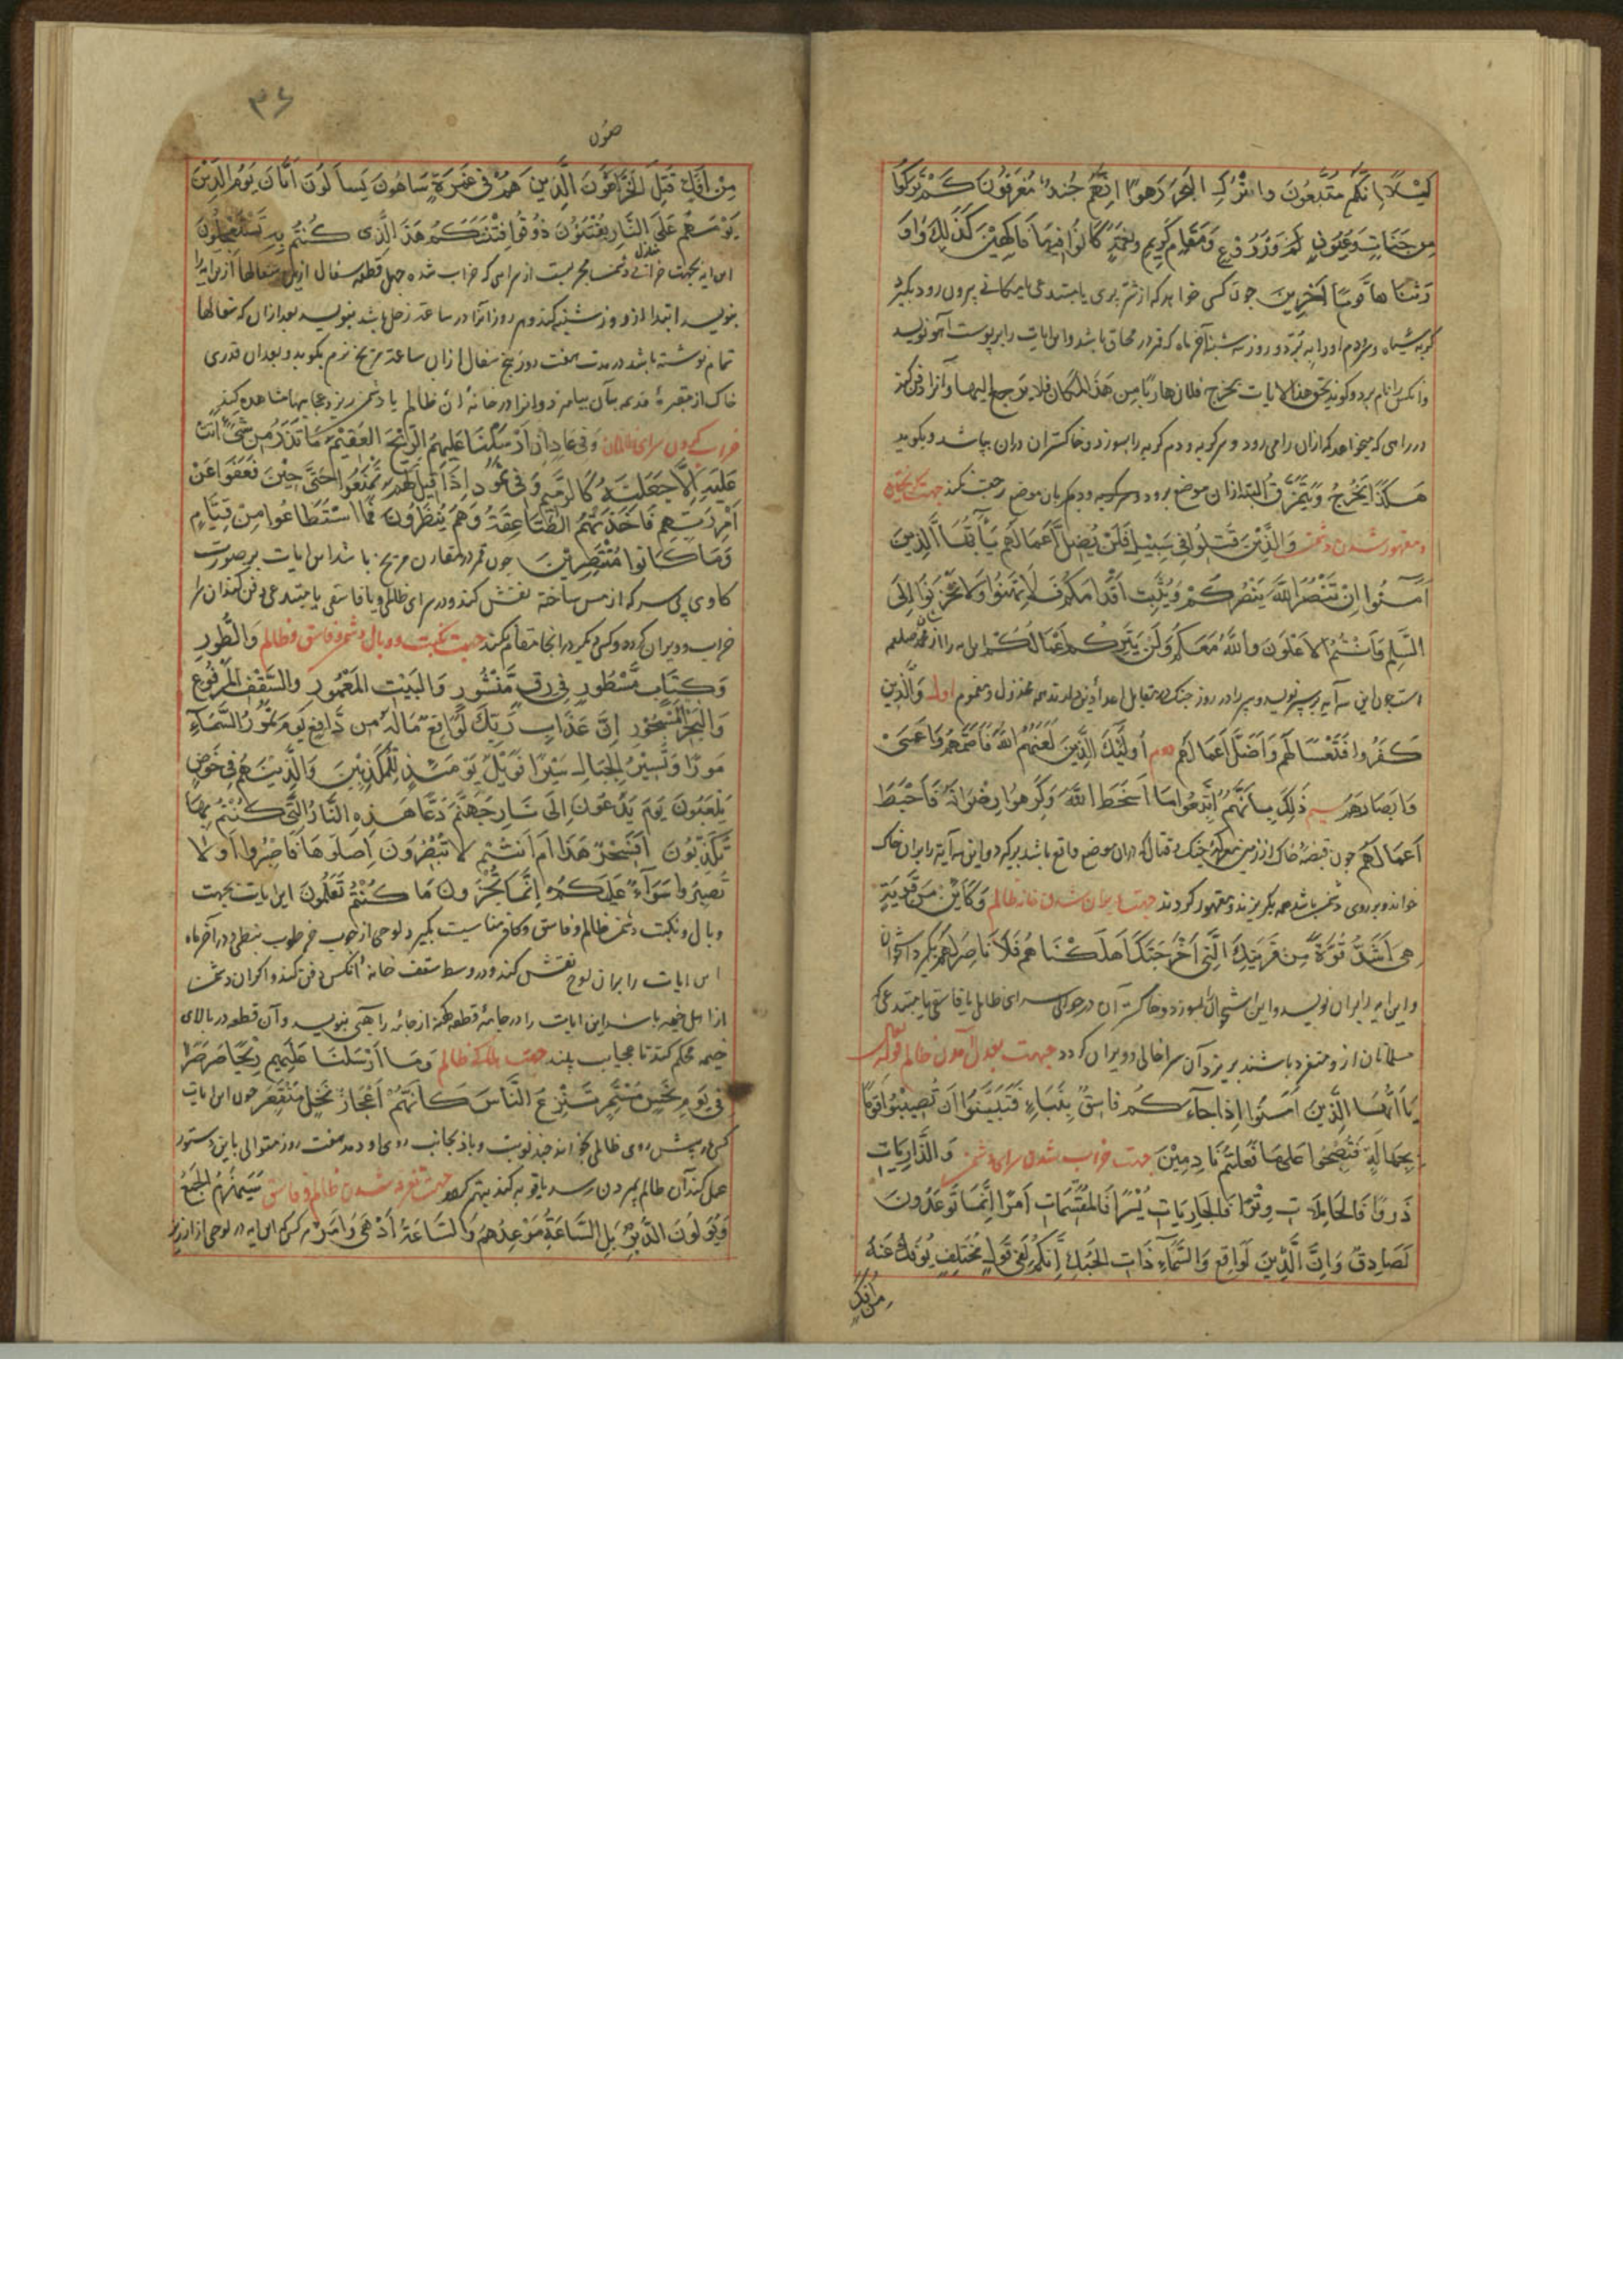 لَيْلًا إِنَّكُم مُتَّبَعُونَ وَاتْرُكِ البَحْرَ رَهْوًا إِنَّهُمْ جُنْدٌ مُغْرَقُونَ كَمْ تَرَكُوا
مِن جَنَّاتٍ وَعُيُونٍ وَزُرُوعٍ وَمَقَامٍ كَرِيمٍ وَنَعْمَةٍ كَانُوا فِيهَا فَاكِهِينَ كَذَلِكَ وَاَوْ
رَثْنَاهَا قَوْمًا آخَرِينَ چون کسی خواهد که از شر یا مبتدعی یا مکانی بیرون رود بگیرد
گربه سیاه و سر و دم او را ببرد و روز سه شنبه آخر ماه که قمر در محاق باشد و این ایات را بر پوست آهو نویسد
و آنکس را نام برد و گوید بحق هذه الایات یخرج فلان هاربا من هذا المکان فلا یرجع الیها و آنرا دفن کند
در راهی که میخواهد که ازان راه میرود و سر گربه و دم گربه را بسوزد و خاکستر ان دران بپاشد و بگوید
هَكَذَا يَخْرُجُ وَيَتَمَزَّقُ البته ازان موضع برود و دیگر بان موضع رجعت نکند جهت
و مقهور شدن دشمن وَالَّذِينَ قُتِلُوا فِي سَبِيلِ فَلَنْ يُضِلَّ أَعْمَالَهُم يَا أَيُّهَا الَّذِينَ
آمَنُوا إِنْ تَنْصُرُوا اللَّهَ يَنْصُرْكُمْ وَيُثَبِّتْ أَقْدَامَكُمْ فَلَا تَهِنُوا وَلَا تَحْزَنُوا إِلَى
السَّلْمِ وَأَنْتُمُ الأَعْلَوْنَ وَاللَّهُ مَعَكُمْ وَلَنْ يَتِرَكُمْ أَعْمَالَكُمْ این آیه را از محمد صلعم
است چون این سه آیه بر سپر نویسد و سپر را در روز جنگ در مقابل اعدا همه مخذول و مغموم اول وَالَّذِينَ
كَفَرُوا فَتَعْسًا لَهُمْ وَأَضَلَّ أَعْمَالَهُم دوم أُولَئِكَ الَّذِينَ لَعَنَهُمُ اللَّهُ فَأَصَمَّهُمْ وَأَعْمَى
وَابَصَارَهُمْ سیم ذَلِكَ بِأَنَّهُمُ اتَّبَعُوا مَا أَسْخَطَ اللَّهَ وَكَرِهُوا رِضْوَانَهُ فَأَحْبَطَ
أَعْمَالَهُم چون قبضه خاک از زمین معرکه جنک و قتال که دران موضع واقع باشد برگیرد و این سه آیه را بران خاک
خواند و بر روی دشمن باشد همه بگریزند و مقهور گردند جهت ویران شدن خانه ظالم وَكَأَيِّنْ مِنْ قَرْيَةٍ
هِيَ أَشَدُّ قُوَّةً مِنْ قَرْيَتِكَ الَّتِي أَخْرَجَتْكَ أَهْلَكْنَاهُمْ فَلَا نَاصِرَ لَهُمْ بگیرد استخوان
و این ایه را بران نویسد و این استخوان بسوزد و خاکستر آن در حوالی سرای ظالم یا فاسقی یا مبتدعی که
مسلمانان از و متنفر باشند بریزد آن سرا خالی و ویران گردد جهت ظالم قوله تعالی
يَا أَيُّهَا الَّذِينَ آمَنُوا إِذَا جَاءَكُمْ فَاسِقٌ بِنَبَاءٍ فَتَبَيَّنُوا أَنْ تُصِيبُوا قَوْمًا
بِجَهَالَةٍ فَتُصْبِحُوا عَلَى مَا فَعَلْتُمْ نَادِمِينَ جهت خراب شدن سرای دشمن وَالذَّارِيَاتِ
ذَرْوًا فَالحَامِلَاتِ وِقْرًا فَالجَارِيَاتِ يُسْرًا فَالمُقَسِّمَاتِ أَمْرًا إِنَّمَا تُوعَدُونَ
لَصَادِقٌ وَإِنَّ الَّدِينَ لَوَاقِعٌ وَالسَّمَاءِ ذَاتِ الحُبُكِ إِنَّكُمْ لَفِي قَوْلٍ مُخْتَلِفٍ يُؤْفَكُ عَنْهُ
من افک
۳۶
صون
مِنْ أُفِكَ قُتِلَ الخَرَّاصُونَ الَّذِينَ هُمْ فِي غَمْرَةٍ سَاهُونَ يَسْأَلُونَ أَيَّانَ يَوْمُ الدِّينِ
يَوْمَ هُمْ عَلَى النَّارِ يُفْتَنُونَ ذُوقُوا فِتْنَتَكُمْ هَذَا الَّذِي كُنْتُمْ بِهِ تَسْتَعْجِلُونَ
این ایه بجهت خرابی دشمن مجربست از سرای که خراب شده چهل قطعه سفال ازین سفالها ازین ایه را
بنویسد ابتدا از روز شنبه کند و هر روز آنرا در ساعت زحل باشد بنویسد بعد ازان که سفالها
تمام نوشته باشد در مدت هفت روز پنج سفال ازان ساعت مریخ نرم بکوبد و بعد ان قدری
خاک از مقبره قدیمه بآن بیامیزد و انرا در خانه ان ظالم یا دشمن ریزد عجایبها مشاهده کند
خراب کردن سرای ظالمان وَفِي عَادٍ إِذْ أَرْسَلْنَا عَلَيْهِمُ الرِّيحَ العَقِيمَ مَا تَذَرُ مِنْ شَيْءٍ أَتَتْ
عَلَيْهِ إِلَّا جَعَلَتْهُ كَالرَّمِيمِ وَفِي ثَمُودَ إِذْ قِيلَ لَهُمْ تَمَتَّعُوا حَتَّى حِينٍ فَعَتَوْا عَنْ
أَمْرِ رَبِّهِمْ فَأَخَذَتْهُمُ الصَّاعِقَةُ وَهُمْ يَنْظُرُونَ فَمَا اسْتَطَاعُوا مِنْ قِيَامٍ
وَمَا كَانُوا مُنْتَصِرِينَ چون قمر در مقارن مریخ باشد این ایات بر صورت
کاوی بی سر که از مس ساخته نقش کند و در سرای ظالمی و یا فاسقی یا مبتدعی دفن کند ان سرا
خراب و ویران گردد و کسی دیگر در انجا مقام نکند جهت نکبت و وبال دشمن و فاسق و ظالم وَالطُّورِ
وَكِتَابٍ مَسْطُورٍ فِي رَقٍّ مَنْشُورٍ وَالبَيْتِ المَعْمُورِ وَالسَّقْفِ المَرْفُوعِ
وَالبَحْرِ المَسْجُورِ إِنَّ عَذَابَ رَبِّكَ لَوَاقِعٌ مَالَهُ مِنْ دَافِعٍ يَوْمَ تَمُورُ السَّمَاءُ
مَوْرًا وَتَسِيرُ الجِبَالُ سَيْرًا فَوَيْلٌ يَوْمَئِذٍ لِلْمُكَذِّبِينَ وَالَّذِينَ هُمْ فِي خَوْضٍ
يَلْعَبُونَ يَوْمَ يُدَعُّونَ إِلَى نَارِ جَهَنَّمَ دَعًّا هَذِهِ النَّارُ الَّتِي كُنْتُمْ بِهَا
تُكَذِّبُونَ أَفَسِحْرٌ هَذَا أَمْ أَنْتُمْ لَا تُبْصِرُونَ إِصْلَوْهَا فَاصْبِرُوا أَوْ لَا
تَصْبِرُوا سَوَاءٌ عَلَيْكُمْ إِنَّمَا تُجْزَوْنَ مَا كُنْتُمْ تَعْمَلُونَ این ایات بجهت
وبال و نکبت دشمن ظالم و فاسق و کافر مناسبت بگیرد لوحی از چوب در آخر ماه
این ایات را بران لوح نقش کند و در وسط سقف خانه انکس دفن کند و اگر ان دشمن
از اهل خیمه باشد این ایات را در جامه قطعه کهنه از جامه را بنویسد و آن قطعه در بالای
خیمه محکم کند تا عجایب بیند جهت هلاک ظالم وَمَا أَرْسَلْنَا عَلَيْهِمْ رِيحًا صَرْصَرًا
فِي يَوْمِ نَحْسٍ مُسْتَمِرٍّ تَنْزِعُ النَّاسَ كَأَنَّهُمْ أَعْجَازُ نَخْلٍ مُنْقَعِرٍ چون این ایات
کسی در پیش روی ظالمی بخواند چند نوبت و باز بجانب روی او دمد هفت روز متوالی باین دستور
عمل کند آن ظالم بمردن رسد یا توبه کند جهت شدن ظالم و فاسق سَيُهْزَمُ الجَمْعُ
وَيُوَلُّونَ الدُّبُرَ بَلِ السَّاعَةُ مَوْعِدُهُمْ وَالسَّاعَةُ أَدْهَى وَأَمَرُّ هر کس که این ایه در لوحی از ارزیز